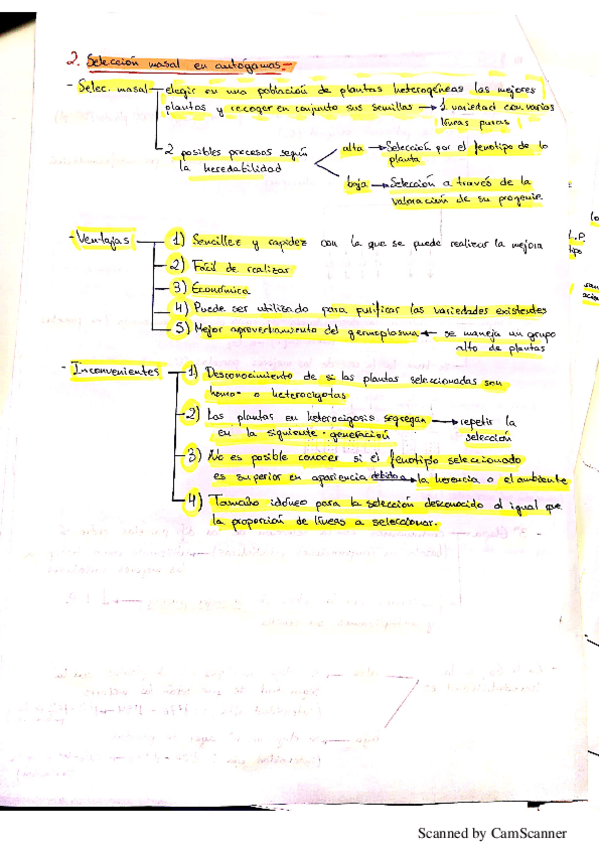 2. Selección masal en autógamas.-
- Selec. masal — elegir en una población de plantas heterogéneas las mejores
plantas y recoger en conjunto sus semillas → 1 variedad con varias
líneas puras
2 posibles procesos según
la heredabilidad
alta → Selección por el fenotipo de la
planta
baja → Selección a través de la
valoración de su progenie.
- Ventajas
1) Sencillez y rapidez con la que se puede realizar la mejora
2) Fácil de realizar
3) Económica
4) Puede ser utilizado para purificar las variedades existentes
5) Mejor aprovechamiento del germoplasma ← se maneja un grupo
alto de plantas
- Inconvenientes
1) Desconocimiento de si las plantas seleccionadas son
homo- o heterocigotas
2) Las plantas en heterocigosis segregan → repetir la
en la siguiente generación
selección
3) No es posible conocer si el fenotipo seleccionado
es superior en apariencia debido a → la herencia o el ambiente
4) Tamaño idóneo para la selección desconocido al igual que
la proporción de líneas a seleccionar.
L.P.
Scanned by CamScanner